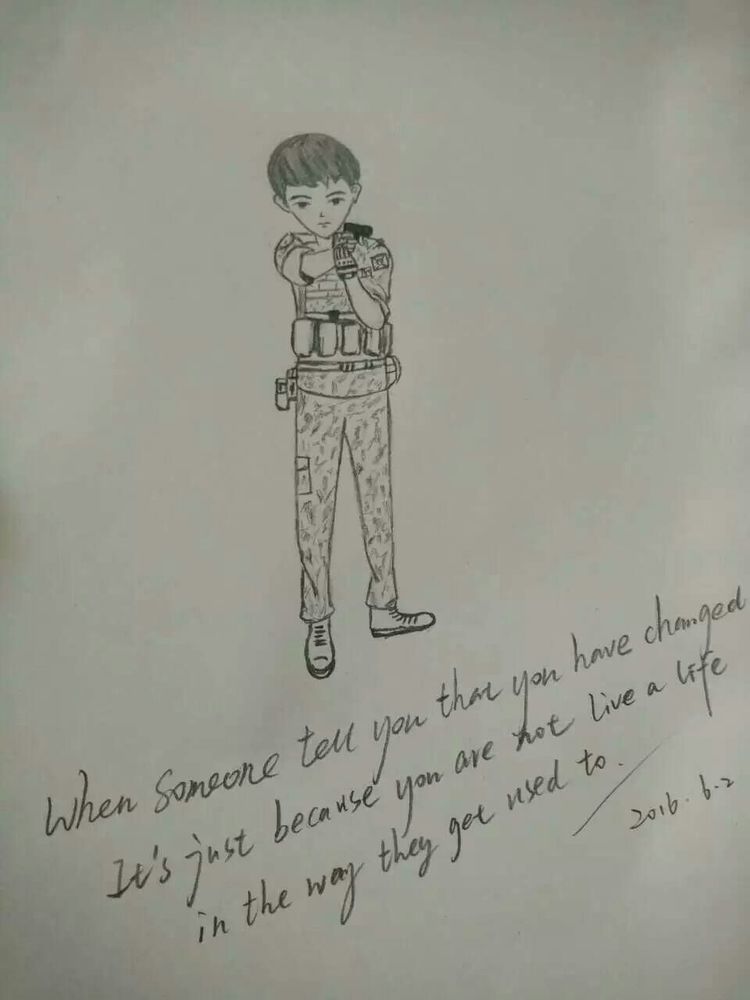 When Someone tell you that you have changed
It's just because you are not live a life
in the way they get used to.
2016. 6.2